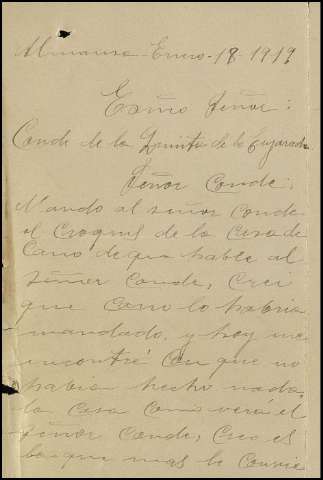 Almansa - Enero - 18 - 1919
Exmo Señor:
Conde de la Quinta de la Enjarada.
Señor Conde:
Mando al señor Conde
el Croquis de la Casa de
Cano de que hable al
señor Conde, Crei
que Cano lo habria
mandado, y hoy me
encontré Con que no
habia hecho nada,
la Casa Como verá el
señor Conde, Creo es
la que mas le Convie